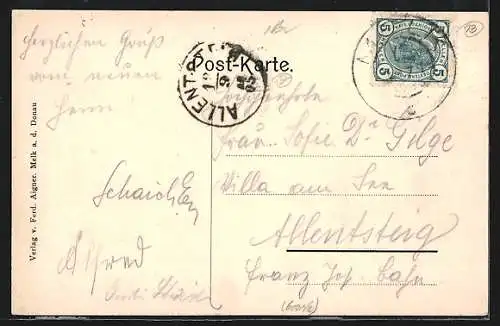 Post-Karte.
5 5
5 5
ALLENTST
herzlichen Gruß
vom neuen
Heim!
Frau Sofie Dr Gilge
Villa am See
Allentsteig
Franz Jos. Bahn
Alfred
Verlag v. Ferd. Aigner. Melk a. d. Donau